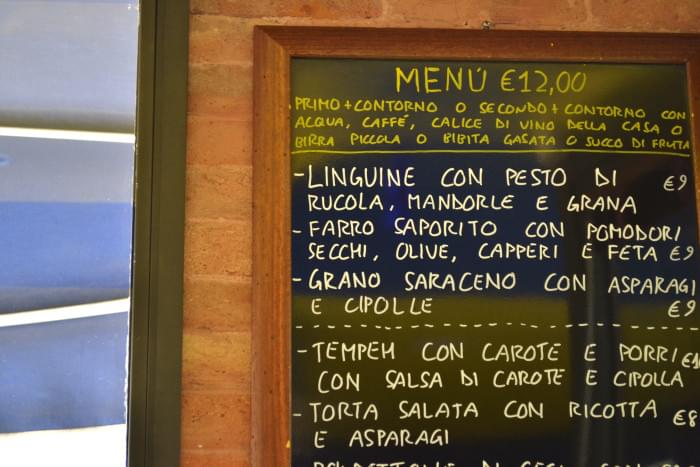 MENÚ €12,00
PRIMO+CONTORNO O SECONDO+CONTORNO CON
ACQUA, CAFFÉ, CALICE DI VINO DELLA CASA O
BIRRA PICCOLA O BIBITA GASATA O SUCCO DI FRUTTA
- LINGUINE CON PESTO DI €9
RUCOLA, MANDORLE E GRANA
- FARRO SAPORITO CON POMODORI
SECCHI, OLIVE, CAPPERI E FETA €9
- GRANO SARACENO CON ASPARAGI
E CIPOLLE €9
- TEMPEH CON CAROTE E PORRI
CON SALSA DI CAROTE E CIPOLLA
- TORTA SALATA CON RICOTTA €8
E ASPARAGI